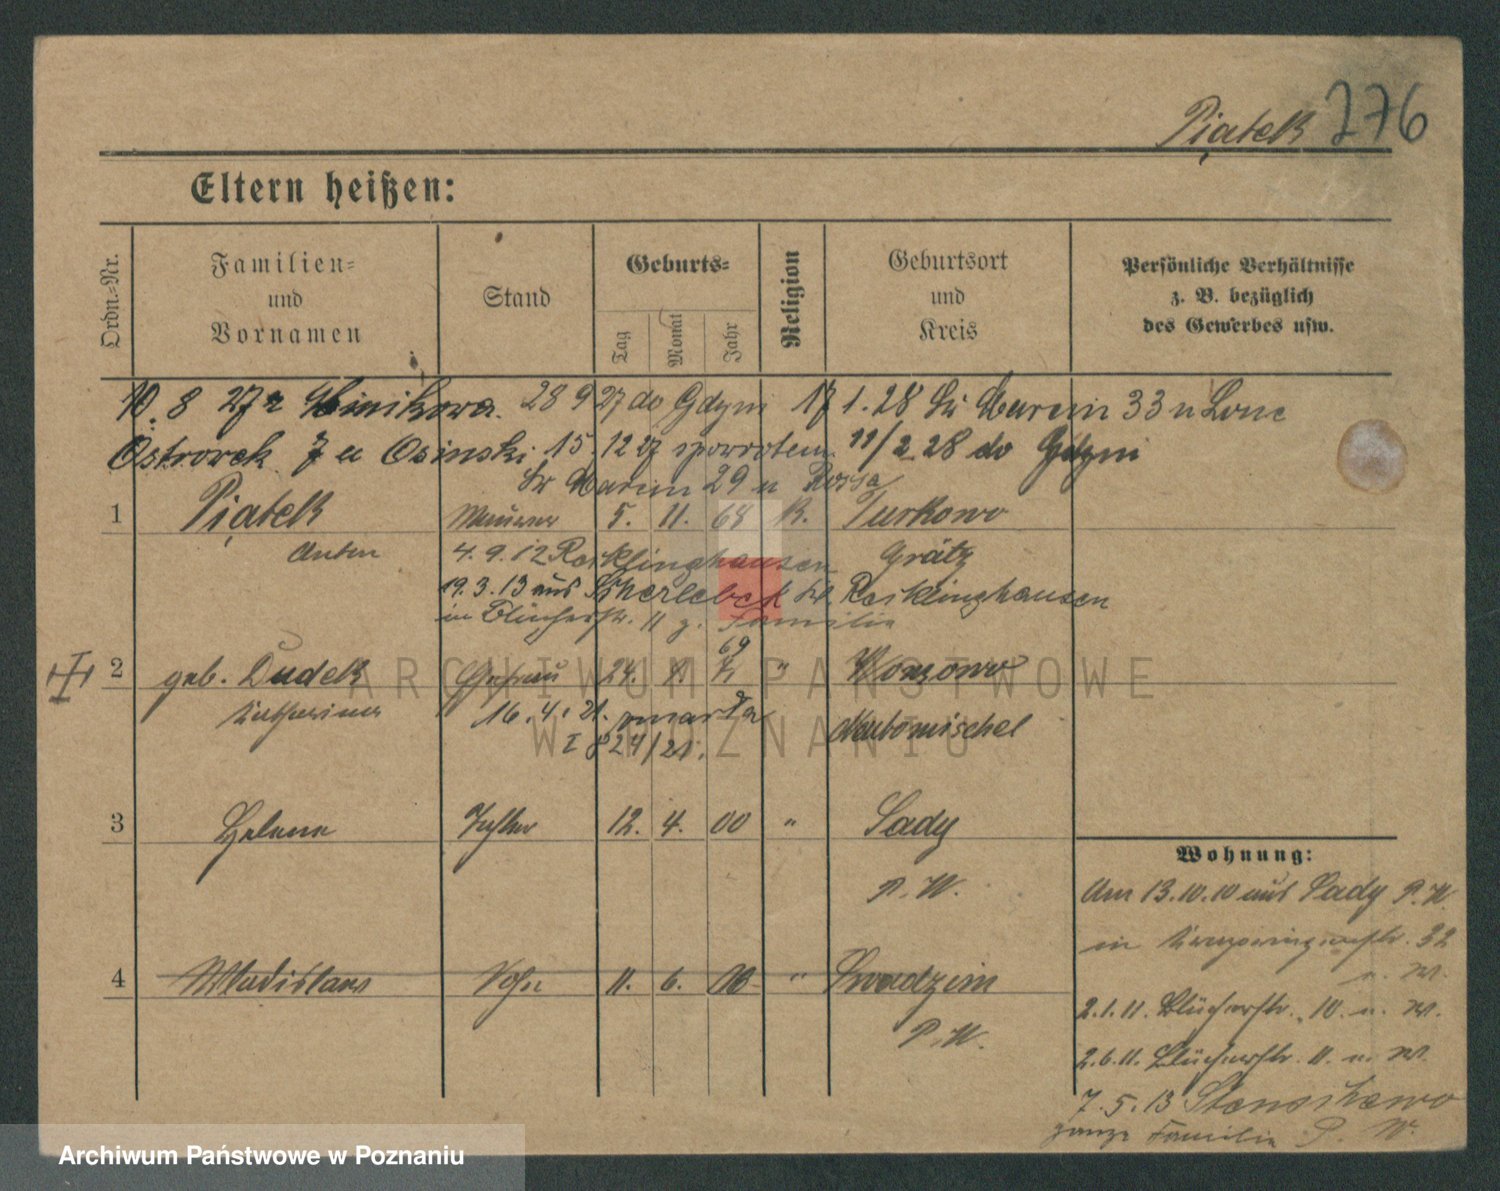 Piątek 276
Eltern heißen:
Ordn.-Nr.
Familien-
und
Vornamen
Stand
Geburts-
Tag
Monat
Jahr
Religion
Geburtsort
und
Kreis
Persönliche Verhältnisse
z. B. bezüglich
des Gewerbes usw.
10. 8 27 28 9 27 do Gdyni 17 1. 28 Św Marcin 33 u
7 u Osinski 15. 12 27 11/2 28 do Gdyni
Św Marcin 29 u
1 Piątek Maurer 5. 11. 68 K. Turkowo
Anton 4. 9. 12 Recklinghausen Grätz
19. 3. 13 aus Kr. Recklinghausen
in Blücherstr. 11 z. Familie
69
2 geb. Dudek Ehefrau 24. " Wonzowo
Katharina 16. 4. 21. zmarła Neutomischel
I 824/21.
3 Helene Tochter 12. 4. 00 " Sady
P. W.
4 Wladislaus Sohn 11. 6. "
P. W.
Wohnung:
Am 13. 10. 10 aus Sady P. W.
in 32
2. 1. 11. Blücherstr. 10
2. 6. 11. Blücherstr. 11.
7. 5. 13
ganze Familie P. W.
ARCHIWUM PAŃSTWOWE
W POZNANIU
Archiwum Państwowe w Poznaniu